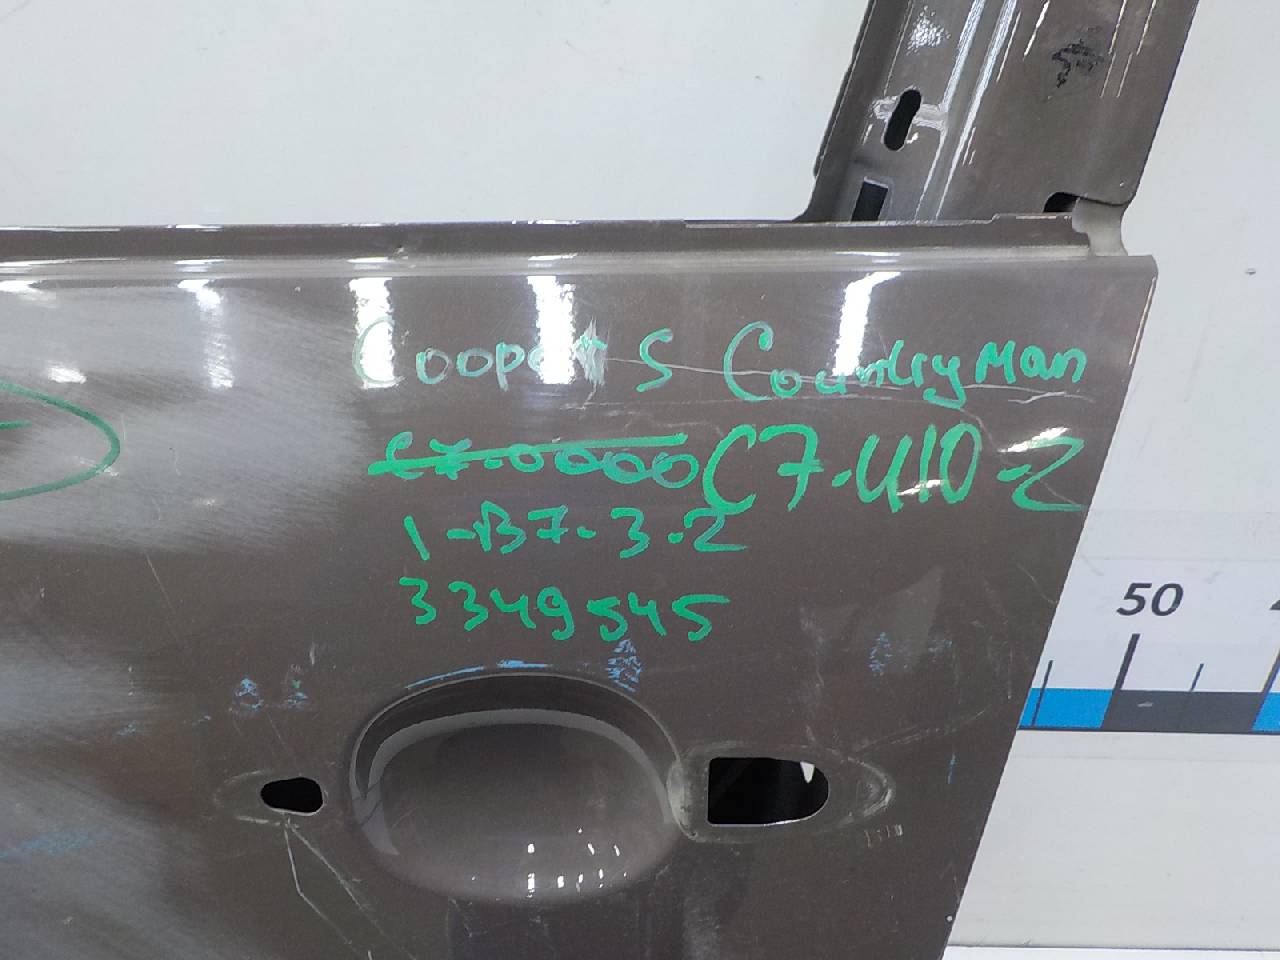 Cooper S CountryMan
C7.0000 C7.410-2
1-B7.3.2
3349545
50